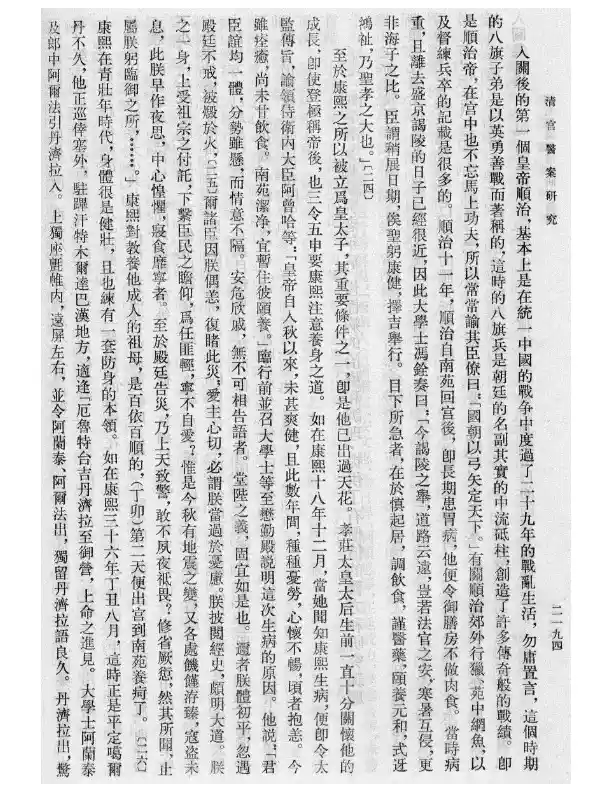 清宫醫案研究
二一九四
入關後的第一個皇帝順治，基本上是在統一中國的戰争中度過了二十九年的戰亂生活，勿庸置言，這個時期
的八旗子弟是以英勇善戰而著稱的，這時的八旗兵是朝廷的名副其實的中流砥柱，創造了許多傳奇般的戰績。卽
是順治帝，在宫中也不忘馬上功夫，所以常常諭其臣僚曰：「國朝以弓矢定天下。」有關順治郊外行獵、苑中網魚，以
及督練兵卒的記載是很多的。順治十一年，順治自南苑回宫後，卽長期患胃病，他便令御膳房不做肉食。當時病
重，且離去盛京謁陵的日子已經很近，因此大學士馮銓奏曰：「今謁陵之舉，道路云遠，豈若法宫之安，寒暑互侵，更
非海子之比。臣謂稍展日期，俟聖躬康健，擇吉舉行。目下所急者，在於慎起居，調飲食，謹醫藥，頤養元和，式迓
鴻祉，乃聖孝之大也。」〔二四〕
至於康熙之所以被立爲皇太子，其重要條件之一，卽是他已出過天花。孝莊太皇太后生前一直十分關懷他的
成長，卽使登極稱帝後，也三令五申要康熙注意養身之道。如在康熙十八年十二月，當她聞知康熙生病，便卽令太
監傳旨，諭領侍衛内大臣阿曾哈等：「皇帝自入秋以來，未甚爽健，且此數年間，種種憂勞，心懷不暢，頃者抱恙。今
雖痊癒，尚未甘飲食。南苑潔净，宜暫住彼頤養。」臨行前並召大學士等至懋勤殿説明這次生病的原因。他説：「君
臣誼均一體，分勢雖懸，而情意不隔。安危欣戚，無不可相告語者。堂陛之義，固宜如是也。邇者朕體初平，忽遇
殿廷不戒，被燬於火，〔二五〕爾諸臣因朕偶恙，復睹此災，愛主心切，必謂朕當過於憂慮。朕披閲經史，頗明大道。朕
之一身，上受祖宗之付託，下繫臣民之瞻仰，爲任匪輕，寧不自愛？惟是今秋有地震之變，又各處饑饉洊臻，寇盜未
息，此朕早作夜思，中心惶懼，寢食靡寧者。至於殿廷告災，乃上天致警，敢不夙夜祗畏？修省厥愆，然其所關，止
屬朕躬臨御之所，……。」康熙對教養他成人的祖母，是百依百順的，（丁卯）第二天便出宫到南苑養疴了。〔二六〕
康熙在青壯年時代，身體很是健壯，且也練有一套防身的本領。如在康熙三十六年丁丑八月，這時正是平定噶爾
丹不久，他正巡倖塞外，駐蹕汗特木爾達巴漢地方，適逢「厄魯特台吉丹濟拉至御營，上命之進見。大學士阿蘭泰
及郎中阿爾法引丹濟拉入。上獨座氈帷内，遠屏左右，並令阿蘭泰、阿爾法出，獨留丹濟拉語良久。丹濟拉出，驚